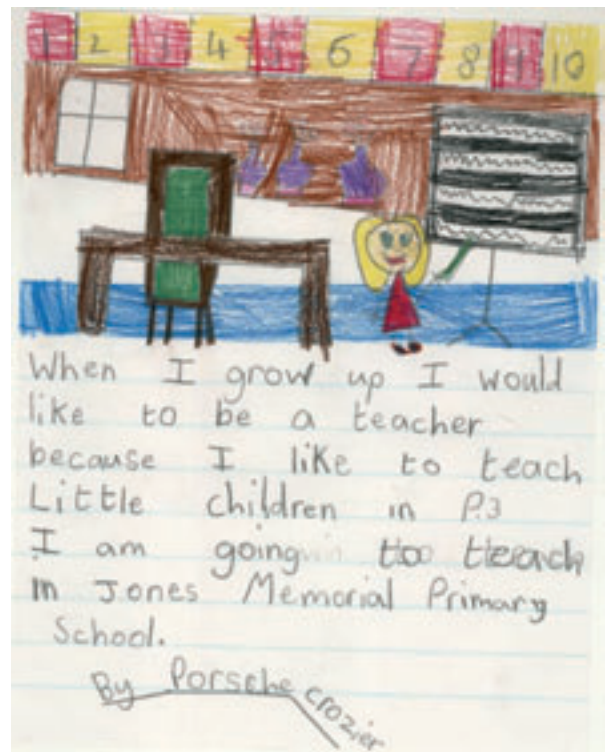 1 2 3 4 5 6 7 8 9 10
When I grow up I would
like to be a teacher
because I like to teach
Little children in P.3
I am going to teach
in Jones Memorial Primary
School.
By Porsche Crozier